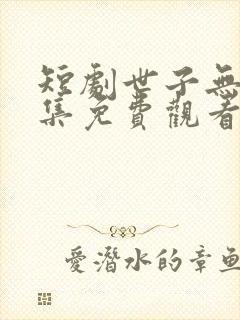 短劇世子無
集免費觀看
愛潛水的章魚